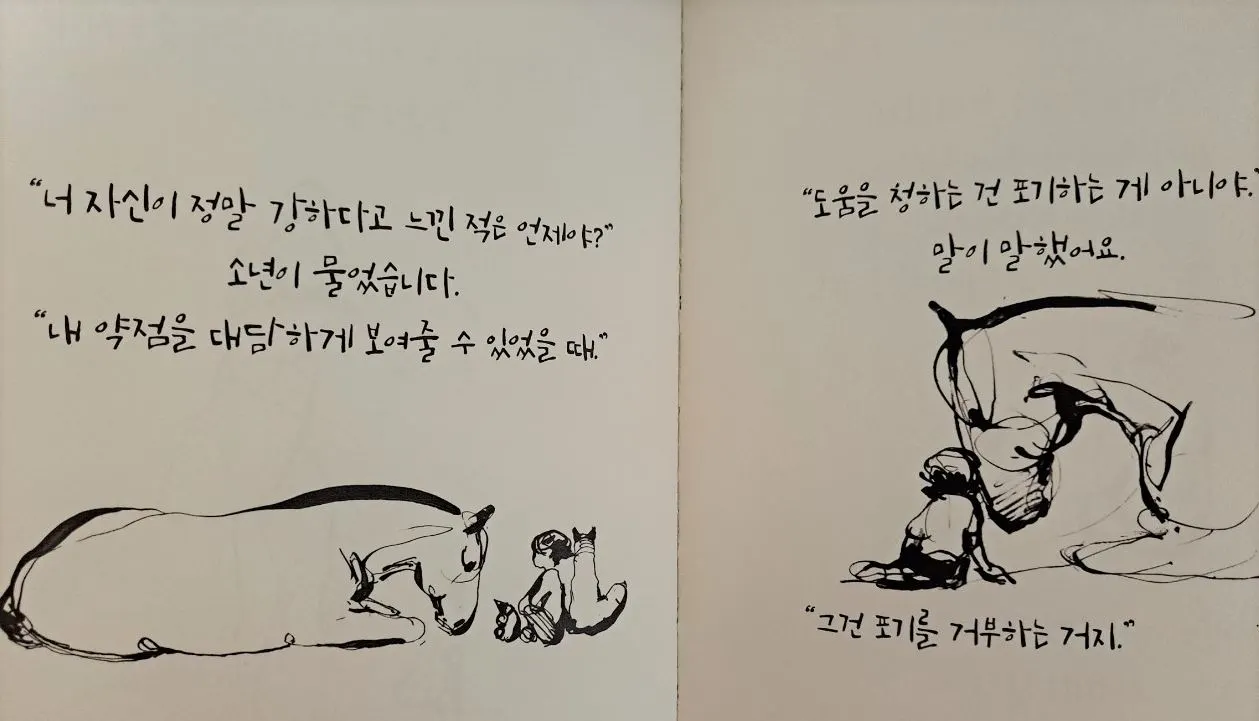 “너 자신이 정말 강하다고 느낀 적은 언제야?”
소년이 물었습니다.
“내 약점을 대담하게 보여줄 수 있었을 때.”
“도움을 청하는 건 포기하는 게 아니야.”
말이 말했어요.
“그건 포기를 거부하는 거지.”